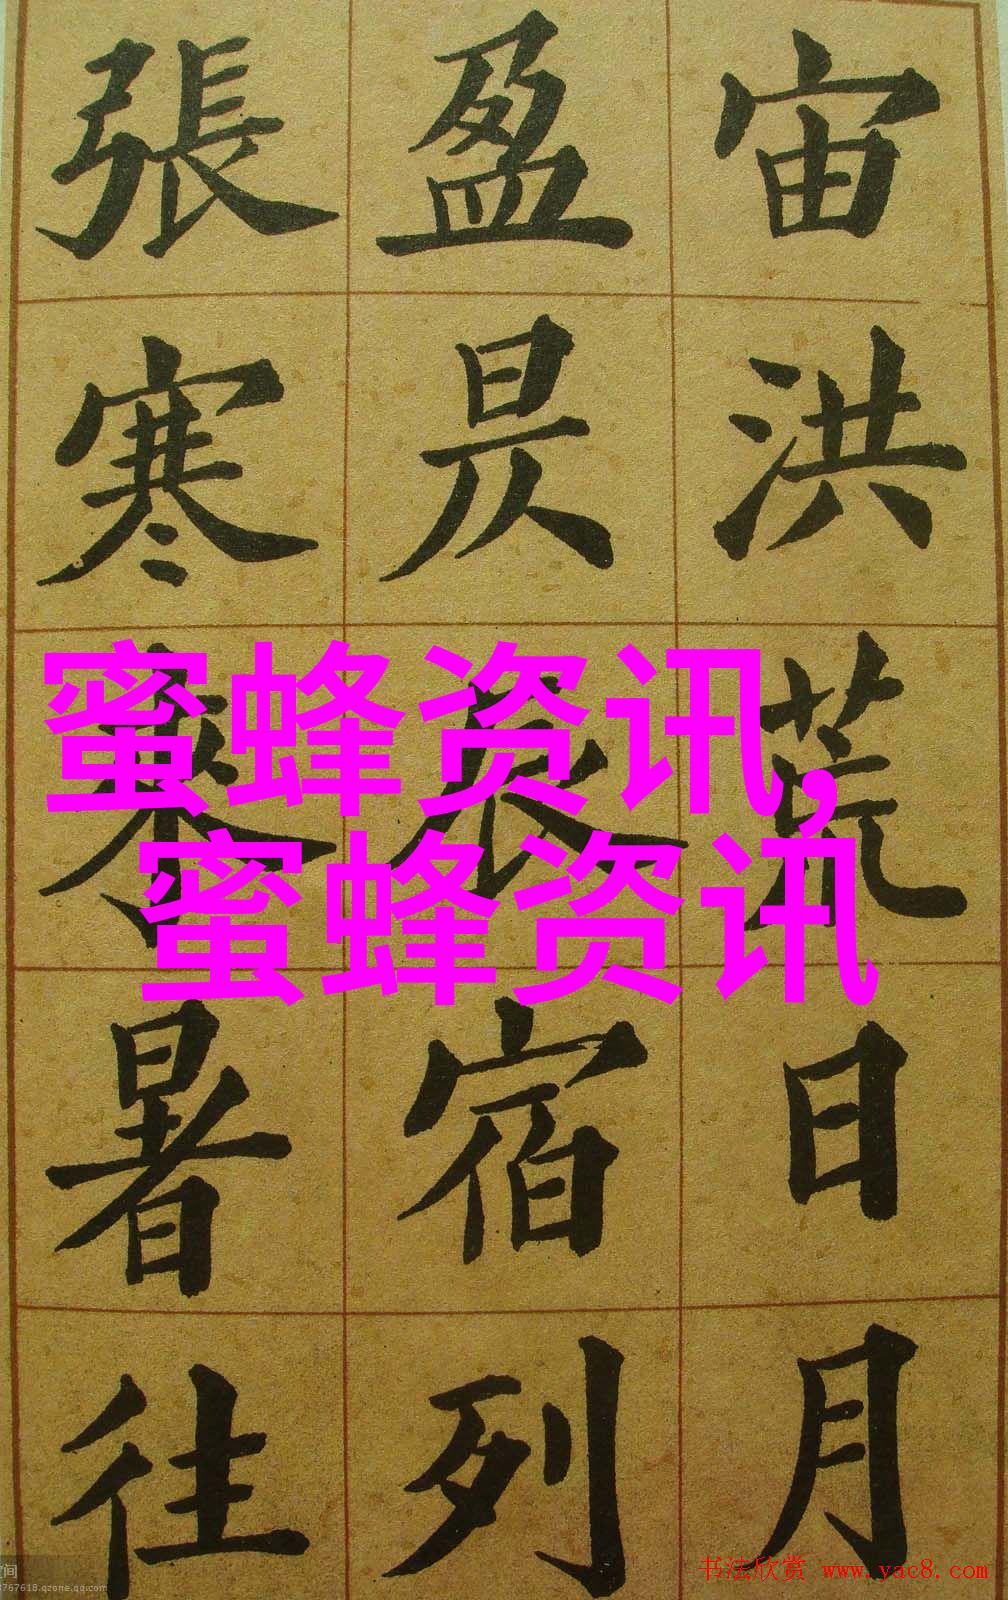 宙洪荒日月
盈昃辰宿列
張寒來暑往
蜜蜂资讯,
蜜蜂资讯
书法欣赏 www.yac8.com
间
767618.qzone.qq.com